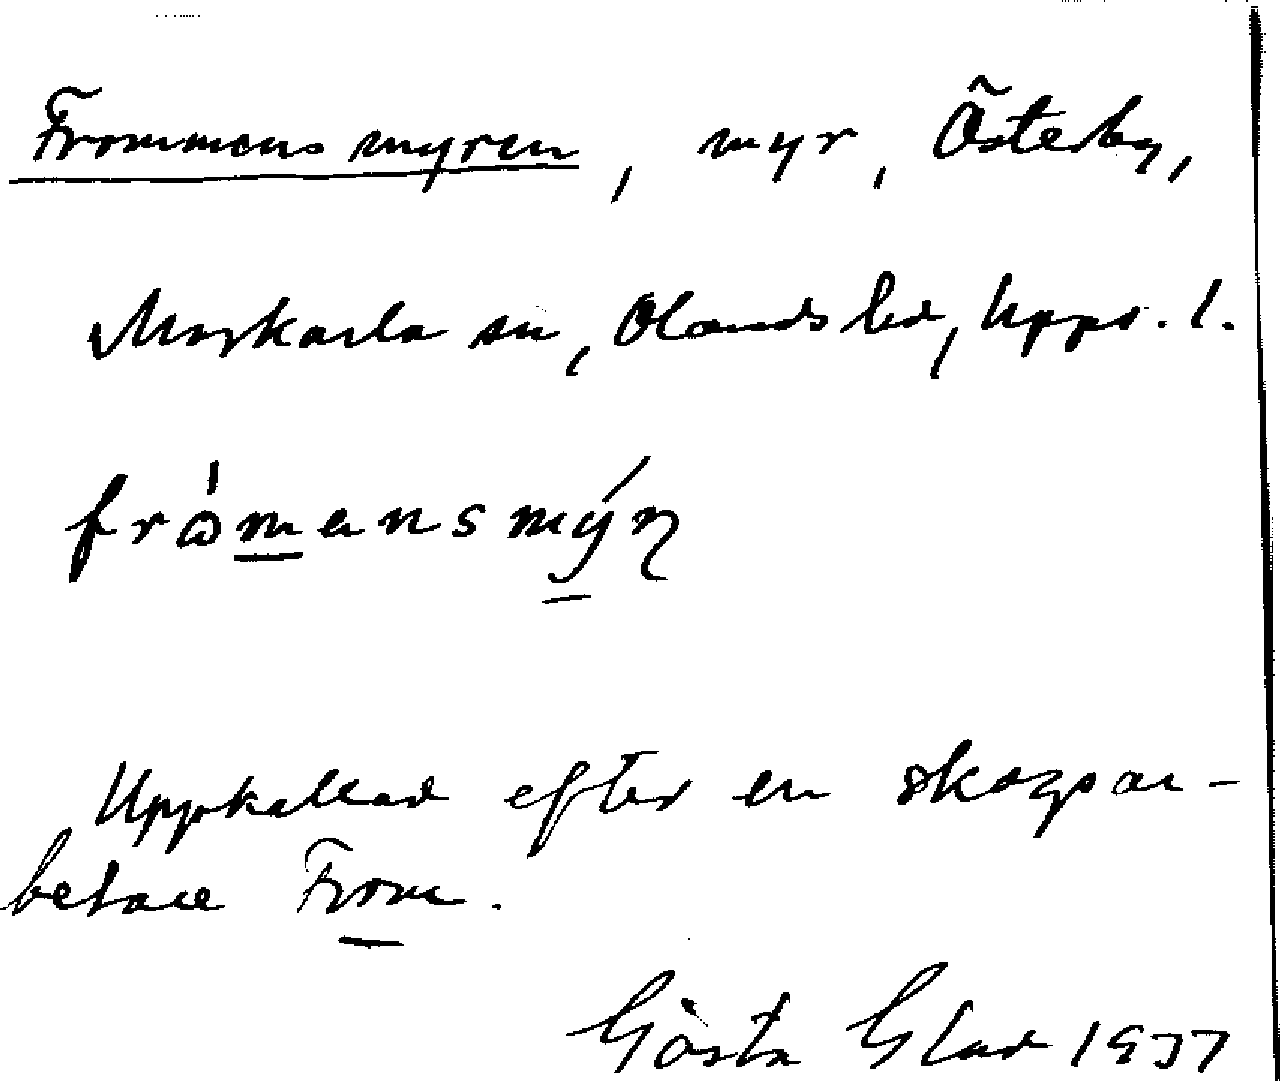 Frommens myren, myr, Österby,
Morkarla sn, Olands hd, Upps. l.
fròmansmýn
Uppkallad efter en skogsar-
betare From.
Gösta Glad 1937